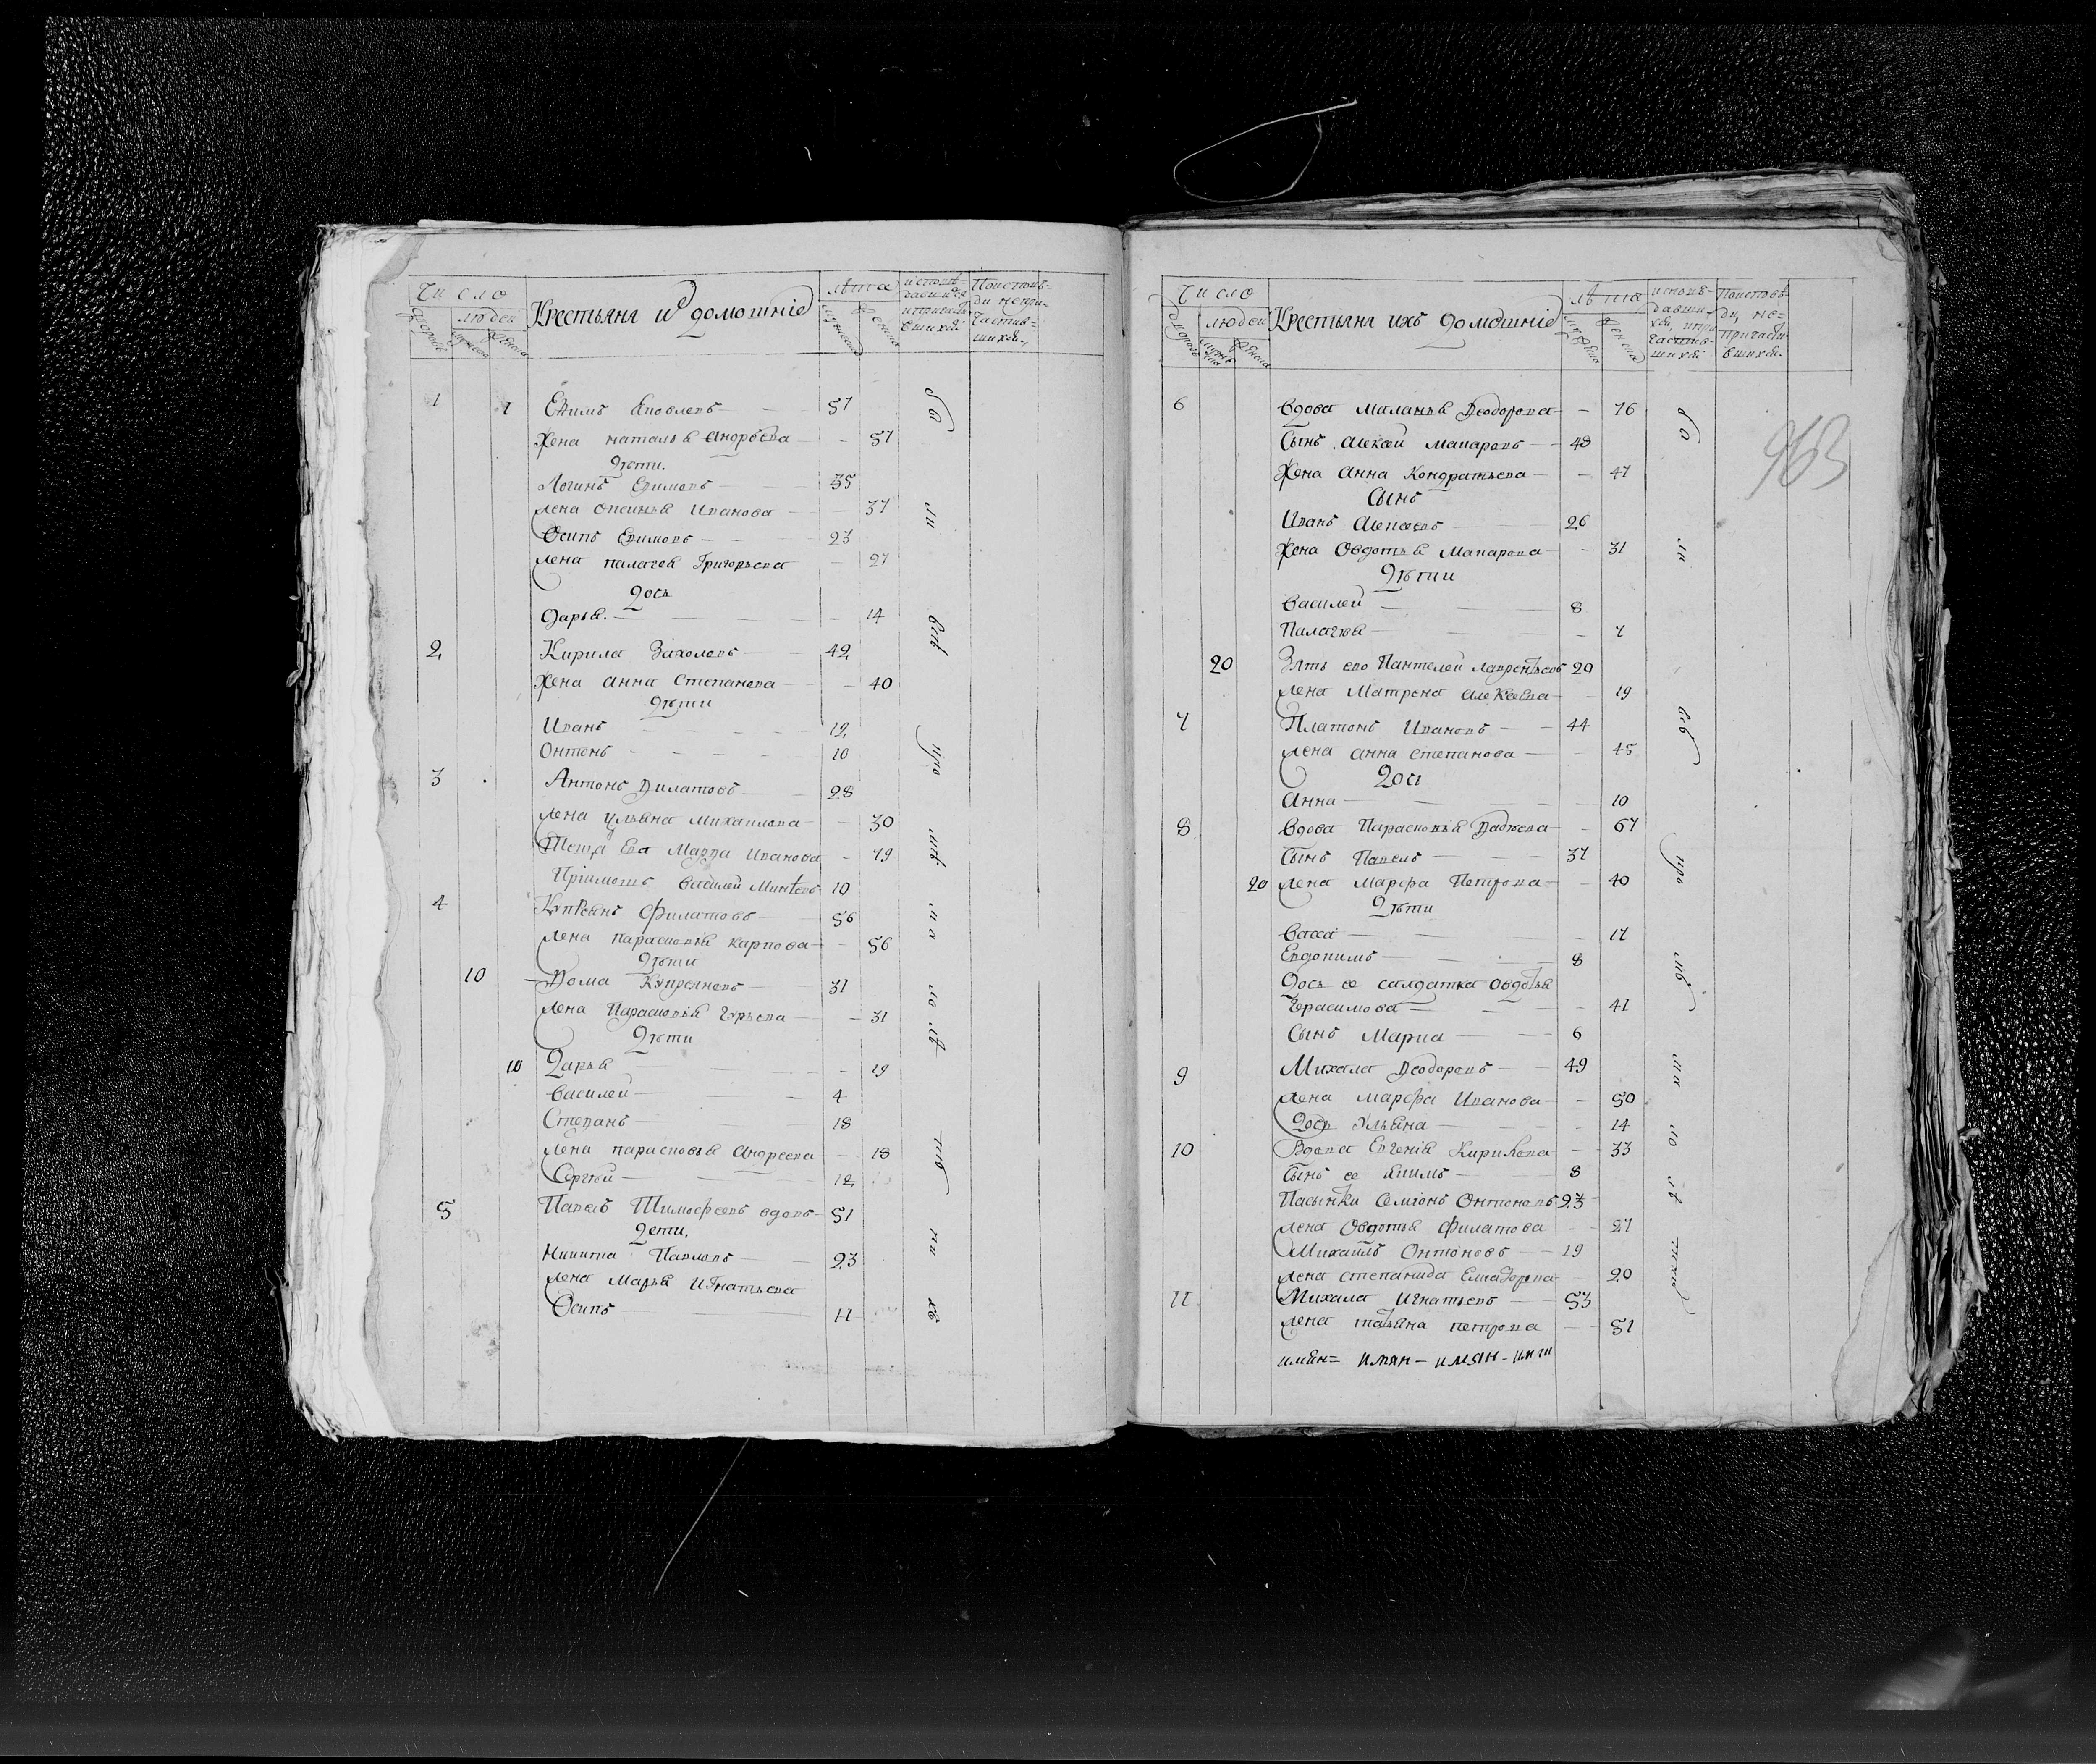 Число
людей
Крестьяна и домошніе
лѣта
1 1 Ефимъ Яковлевъ 57
Жена наталья андрѣева 57
Дѣти.
Логинъ Ефимовъ 35
жена Иванова 37
Осипъ Ефимовъ 23
жена палагея Григорьева 27
Дочь
Дарья. 14
2 Кирила 42
Жена анна Степанова 40
Дѣти
Иванъ 19
Онтонъ 10
3 Антонъ Филатовъ 28
жена ульяна Михаилова 30
Теща Ева Марфа Иванова 79
Пріимышъ Василей 10
4 Филатовъ 56
жена парасковья карпова 56
Дѣти
10 Фома 31
жена Парасковья Гурьева 31
Дѣти
10 Дарья 19
Василей 4
Степанъ 18
жена парасковья Андреева 18
Сергѣй 12
5 Павелъ Тимофѣевъ вдовъ 51
Дети,
Никита Павловъ 23
жена Марья Игнатьева
Осипъ 11
Число
людей
Крестьяна ихъ домошніе
лѣта
6 Вдова Маланья Феодорова 76
Сынъ Алексѣй Макаровъ 48
Жена Анна Кондратьева 47
Сынъ
Иванъ Алексѣевъ 26
Жена Овдотья Макарова 31
Дѣти
Василей 8
Палагѣя 7
20 Зять ево Пантелей Лаврентьевъ 20
жена Матрена Алексѣева 19
7 Платонъ Ивановъ 44
жена анна степанова 45
Дочь
Анна 10
8 Вдова Парасковья 67
Сынъ Павелъ 37
20 жена Марфа Петрова 40
Дѣти
Васса 17
Евдокимъ 8
Дочь ее салдатка Овдотья
Герасимова 41
Сынъ Марка 6
9 Михаила Феодоровъ 49
жена Марфа Иванова 50
Дочь Ульяна 14
10 Вдова Евгенія Кирилова 33
Сынъ ее Якимъ 8
Пасынки Семіонъ Онтоновъ 23
жена Овдотья Филатова 27
Михаилъ Онтоновъ 19
жена степанида 20
11 Михаила Игнатьевъ 53
жена татьяна петрова 51
963